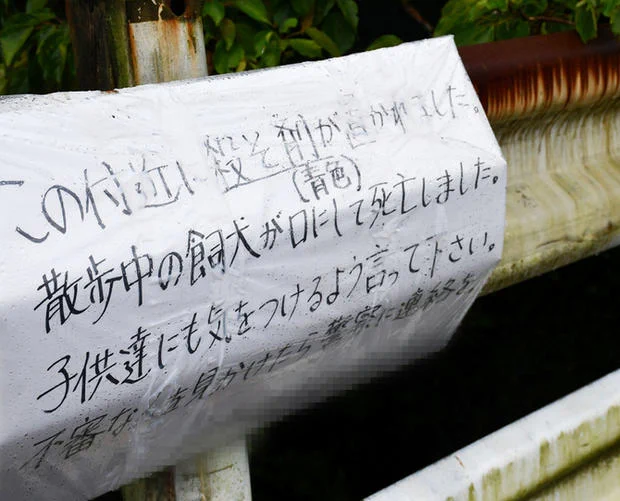 この付近に殺そ剤が置かれました。
(青色)
散歩中の飼犬が口にして死亡しました。
子供達にも気をつけるよう言って下さい。
不審な を見かけたら警察に連絡を